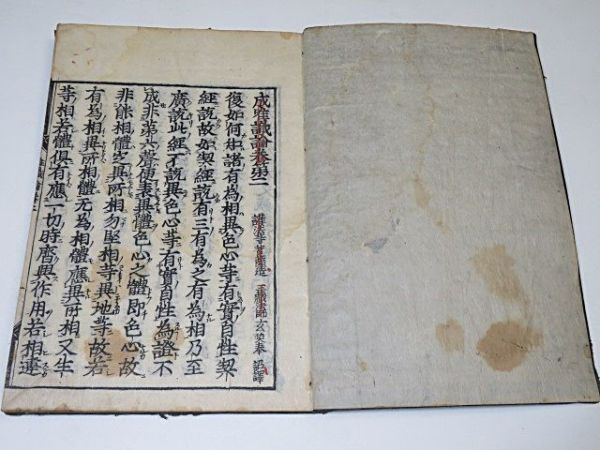 成唯識論卷第二
護法等菩薩造 三藏法師玄奘奉 詔譯
復如何知諸有為相異色心等有實自性契
經說故如契經說有三有為之有為相乃至
廣說此經不說異色心等有實自性為證不
成非第六聲便表異體色心之體即色心故
非能相體定異所相勿堅相等異地等故若
有為相異所相體无為相體應異所相又生
等相若體俱有應一切時齊興作用若相違